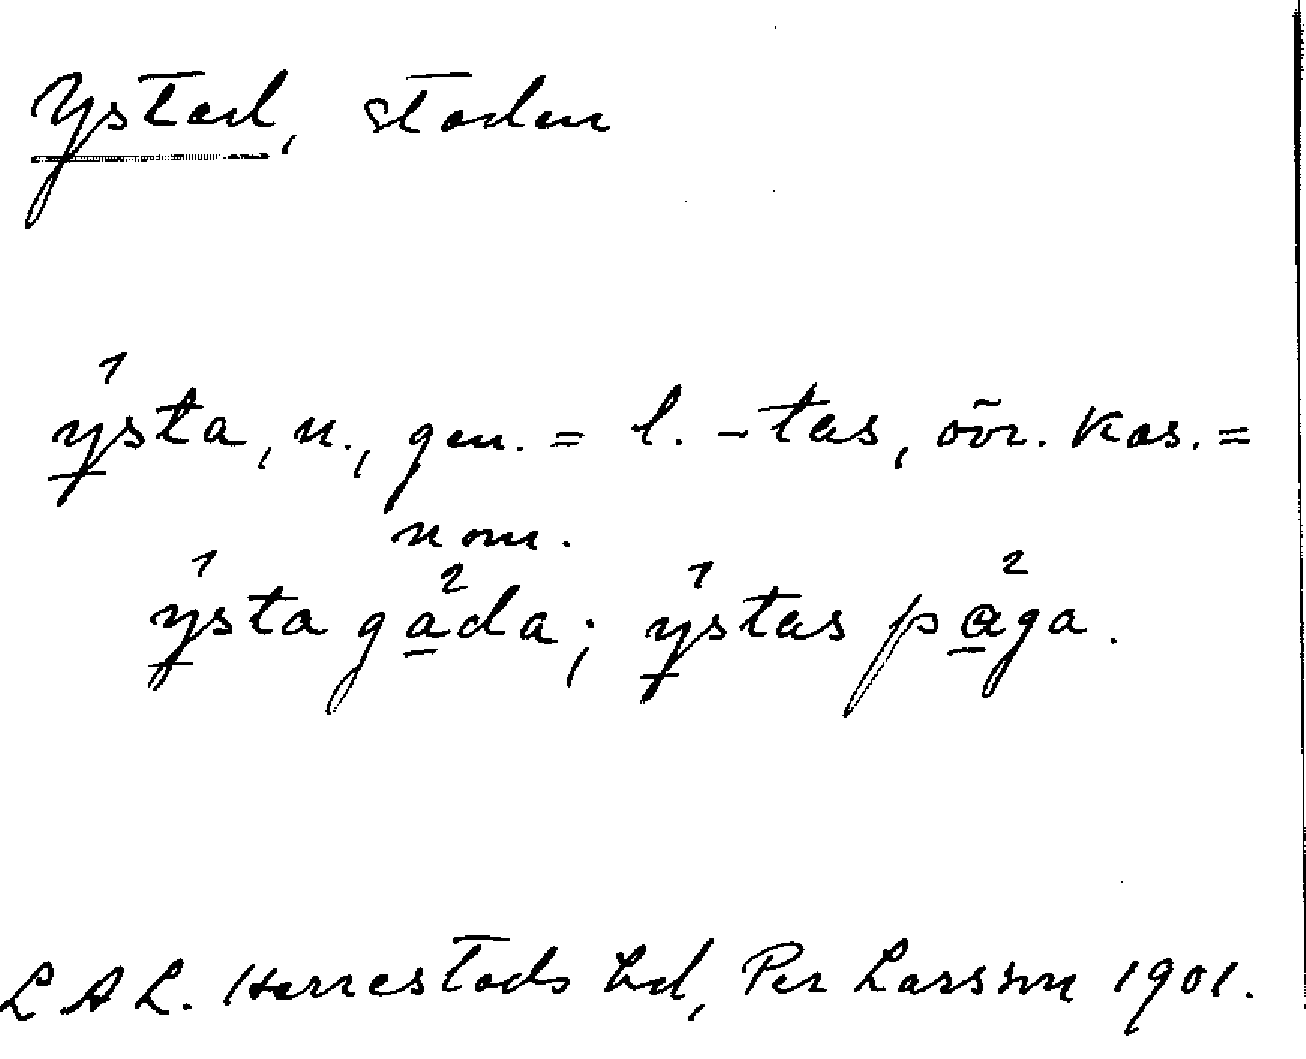 Ystad, staden
ysta, n., gen. = l. -tas, övr. kas. =
nom.
ysta gada; ystas paga.
L A L. Herrestads hd, Per Larsson 1901.